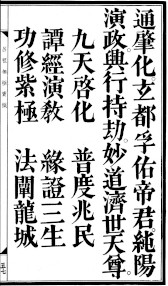 通肇化玄都孚佑帝君。純陽
演政興行持劫。妙道濟世天尊。
九天啓化　普度兆民
譚經演教　緣證三生
功修紫極　法闡龍城